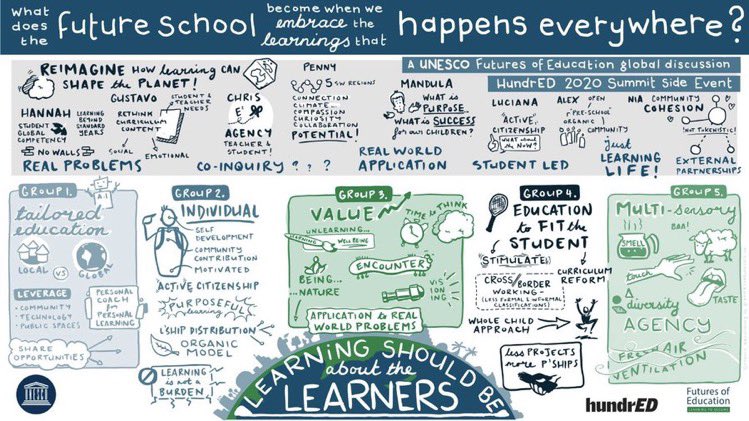 What does the future school become when we embrace the learnings that happens everywhere?
A UNESCO Futures of Education global discussion
HundrED 2020 Summit Side Event
REIMAGINE How learning CAN
SHAPE the PLANET!
HANNAH
STUDENT
GLOBAL
COMPETENCY
LEARNING
BEYOND
STANDARD
YEARS
NO WALLS
GUSTAVO
STUDENT &
TEACHER
NEEDS
RETHINK
CURRICULUM
CONTENT
SOCIAL
EMOTIONAL
CHRIS
AGENCY
TEACHER &
STUDENT!
PENNY
5 SW REGIONS
CONNECTION
CLIMATE
COMPASSION
CURIOSITY
COLLABORATION
POTENTIAL!
MANDULA
WHAT is
PURPOSE
WHAT is SUCCESS
for our CHILDREN?
LUCIANA
"ACTIVE"
CITIZENSHIP
ALEX
OPEN
PRE-SCHOOL
ORGANIC
COMMUNITY
NIA
COMMUNITY
COHESION
NOT TOKENISTIC!
REAL PROBLEMS
CO-INQUIRY ? ? ?
REAL WORLD
APPLICATION
STUDENT LED
Just
LEARNING
LIFE!
EXTERNAL
PARTNERSHIPS
GROUP 1.
A I
tailored
education
LOCAL
VS
GLOBAL
LEVERAGE
COMMUNITY
TECHNOLOGY
PUBLIC SPACES
PERSONAL
COACH
for
PERSONAL
LEARNING
SHARE
OPPORTUNITIES
GROUP 2.
INDIVIDUAL
SELF
DEVELOPMENT
COMMUNITY
CONTRIBUTION
MOTIVATED
ACTIVE CITIZENSHIP
PURPOSEFUL
learning
L'SHIP DISTRIBUTION
ORGANIC
MODEL
LEARNING
is not a
BURDEN!
GROUP 3.
VALUE
TIME to THINK
UNLEARNING...
LEARNING
WELL BEING
ENCOUNTER
BEING...
...NATURE
VISITING
APPLICATION to REAL
WORLD PROBLEMS
GROUP 4.
EDUCATION
to FIT the
STUDENT
STIMULATE
CURRICULUM
REFORM
CROSS/BORDER
WORKING -
(LESS FORMAL & INFORMAL
CLASSIFICATIONS)
WHOLE CHILD
APPROACH
less PROJECTS
more P'SHIPS
GROUP 5.
MULTI-sensory
BAA!
SMELL
touch
TASTE
diversity
AGENCY
FRESH AIR
VENTILATION
LEARNING SHOULD BE
about the
LEARNERS
hundrED
Futures of
Education
LEARNING TO BECOME